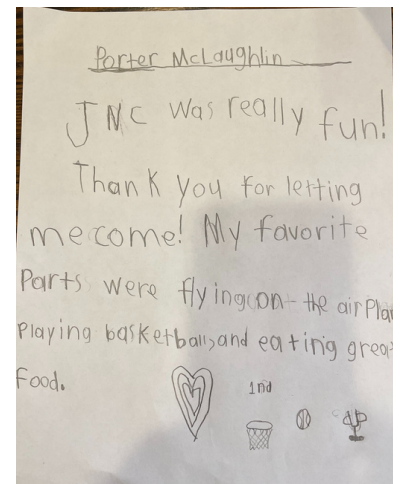 Porter McLaughlin
JNC was really fun!
Thank you for letting
me come! My favorite
Parts were flying on the airPla
Playing basketball, and eating grea
Food.
1nd